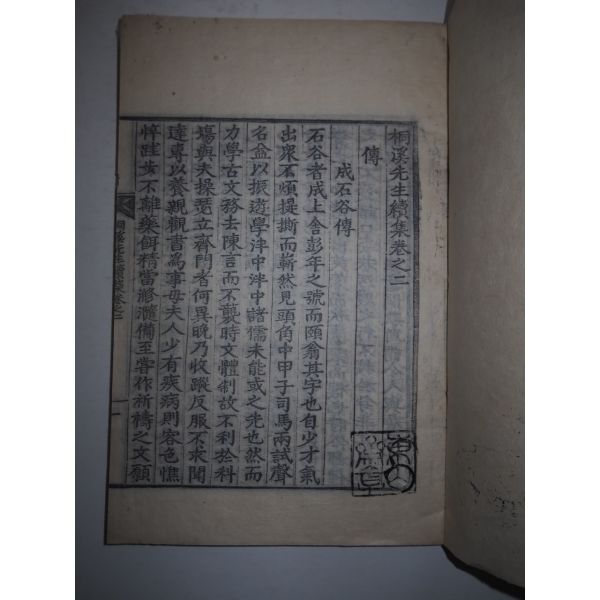 桐溪先生續集卷之二
傳
成石谷傳
石谷者成上舍彭年之號而頤翁其字也自少才氣
出衆不煩提撕而嶄然見頭角中甲子司馬兩試聲
名益以振遊學泮中泮中諸儒未能或之先也然而
力學古文務去陳言而不襲時文體制故不利於科
場與夫操瑟立齊門者何異晚乃收蹤反服不求聞
達專以養親觀書爲事母夫人少有疾病則容色憔
悴跬步不離藥餌精當滫瀡備至嘗作祈禱之文願
桐溪先生續集卷之二
一